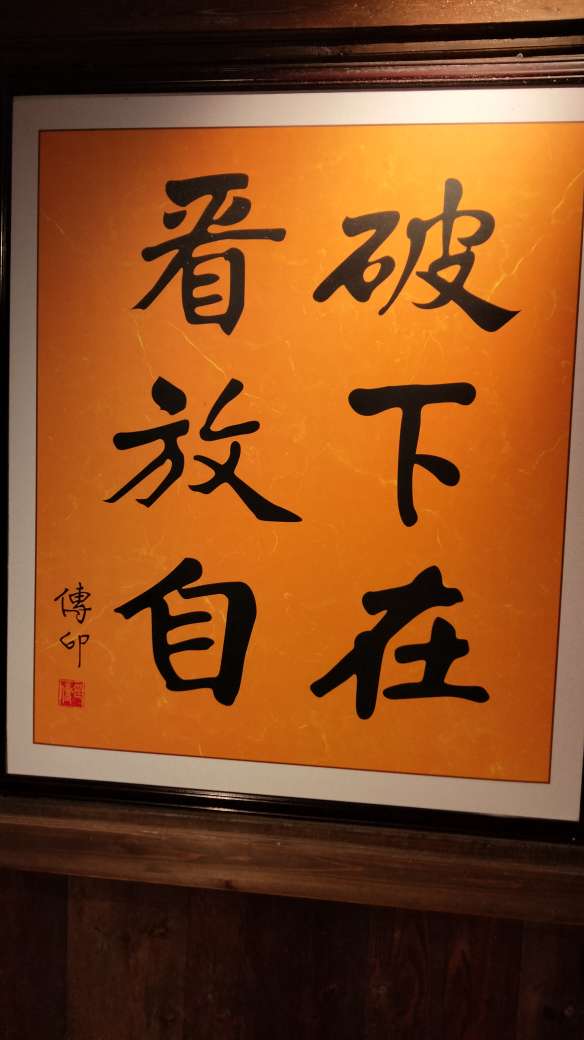 看破
放下
自在
傳印